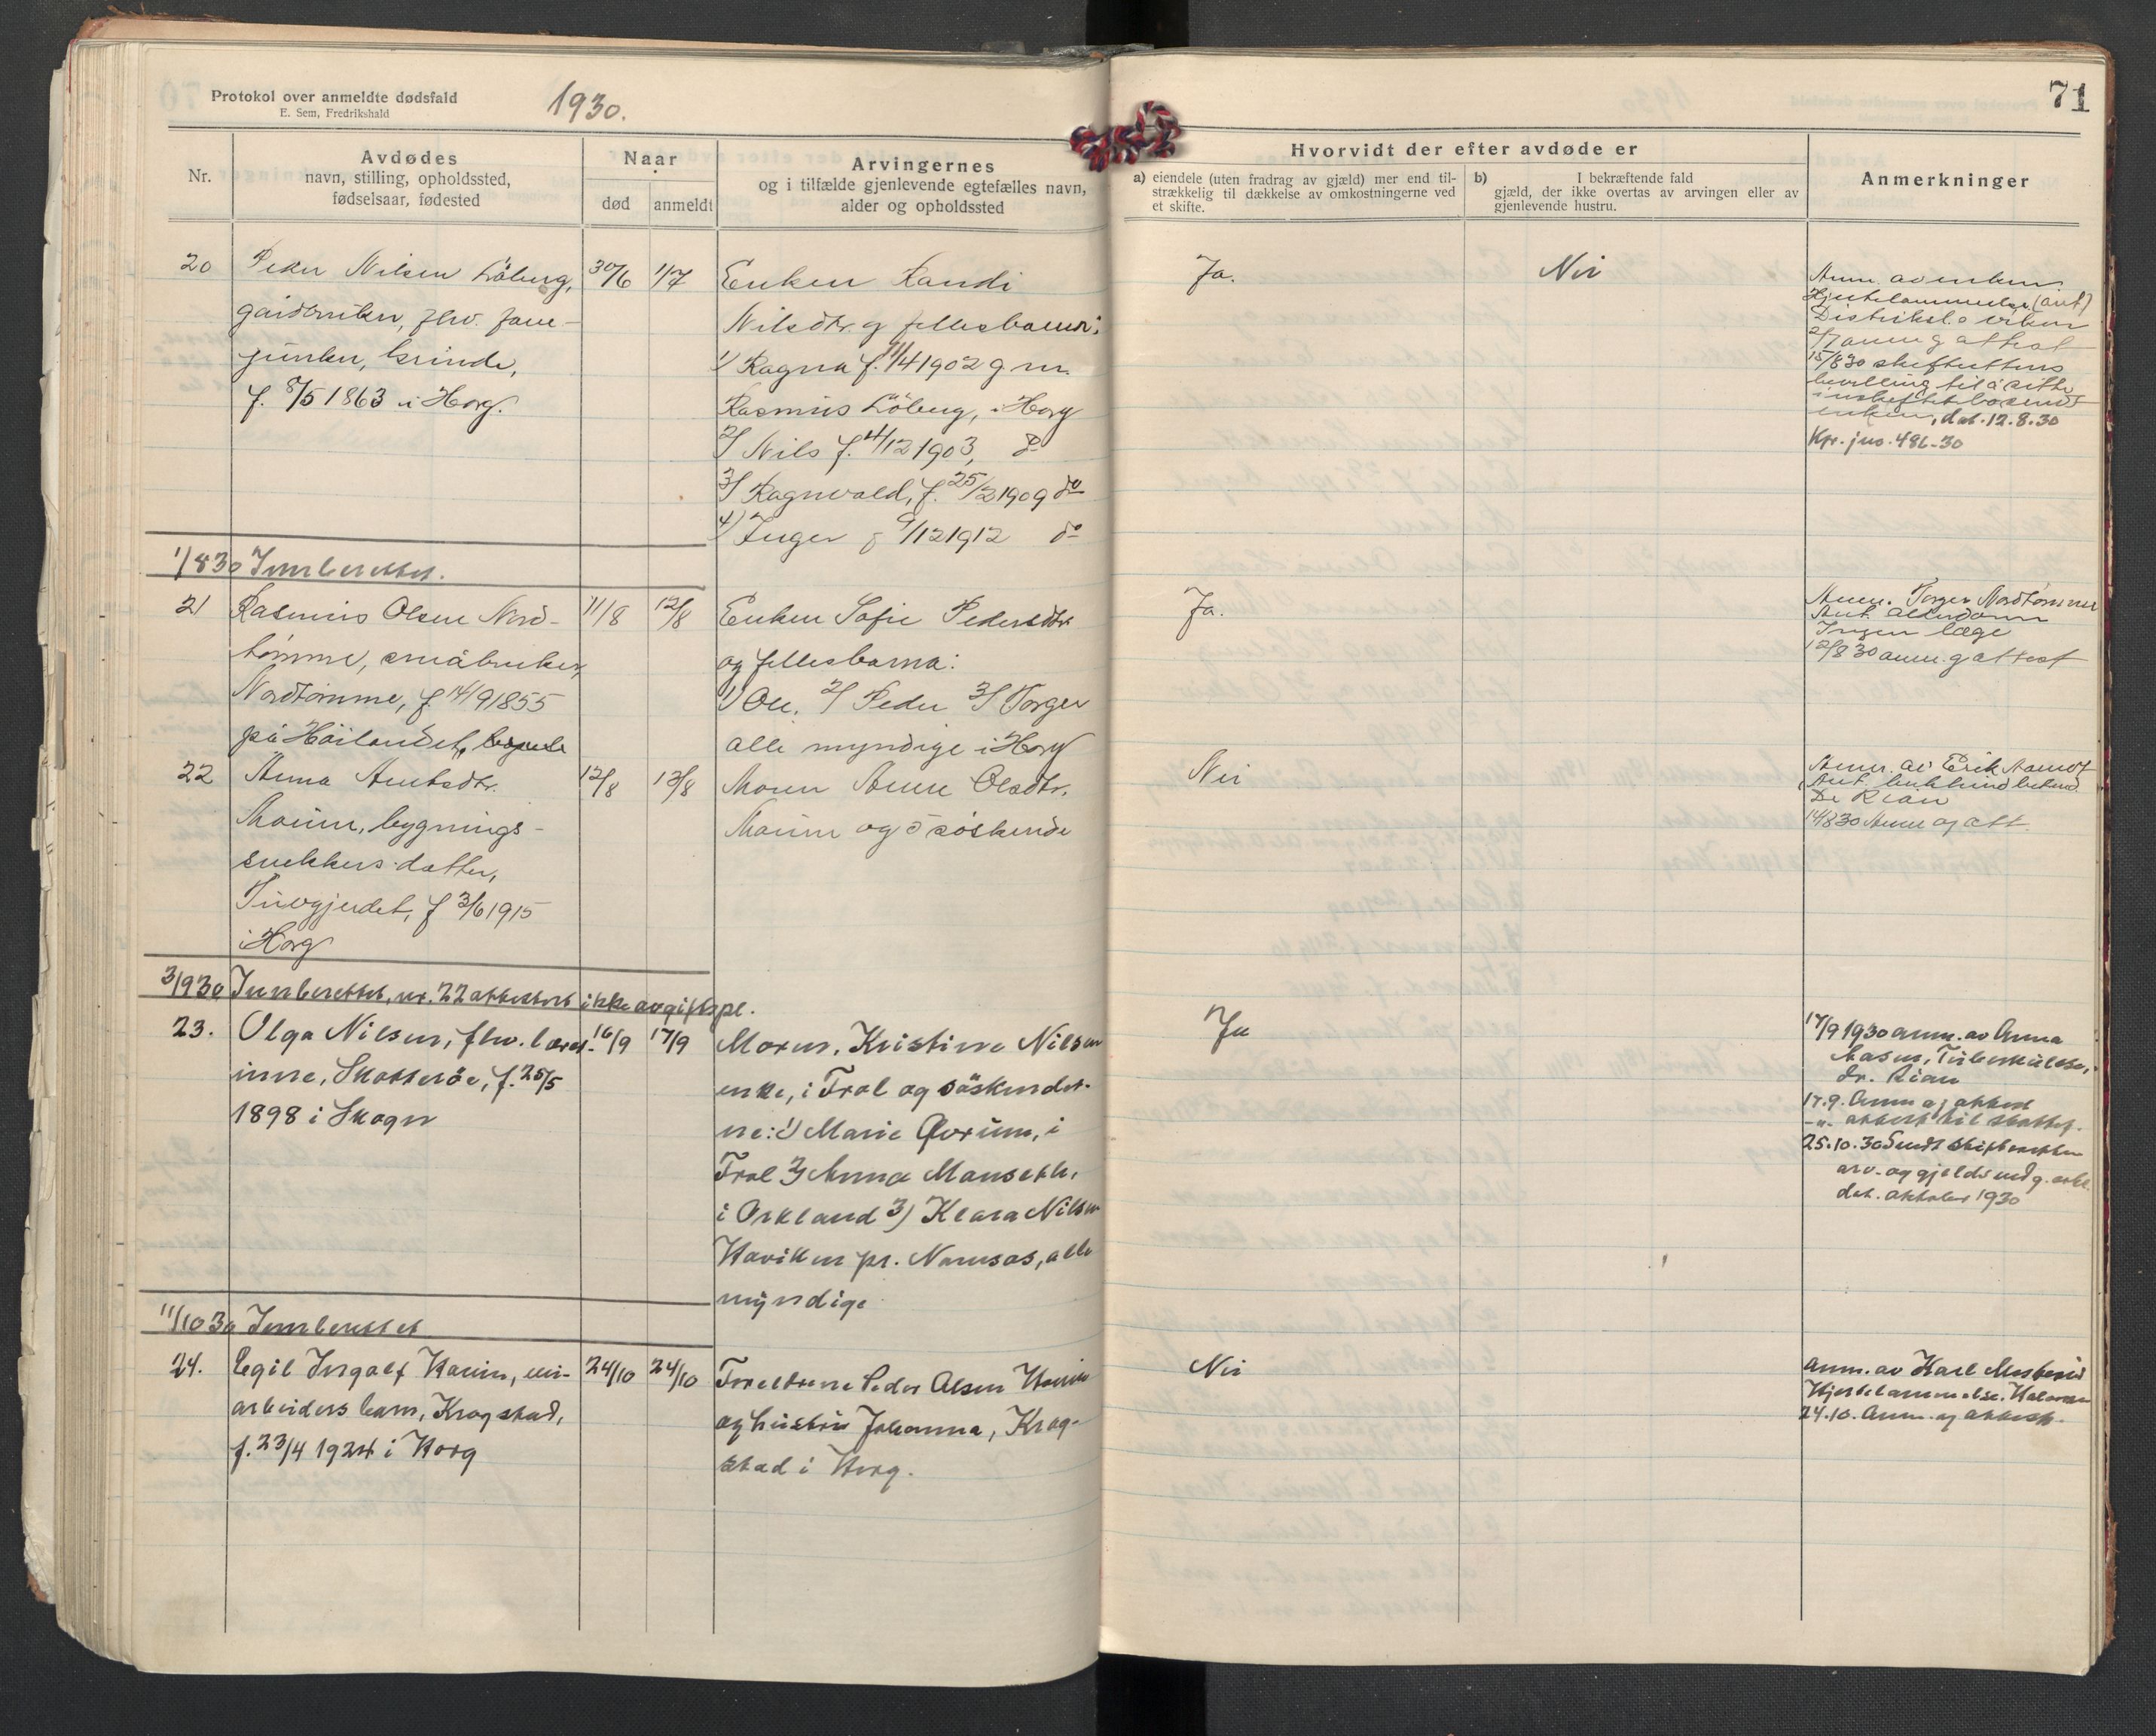 Protokol over anmeldte dødsfald
E. Sem, Fredrikshald
1930.
Nr.
Avdødes
navn, stilling, opholdssted,
fødselsaar, fødested
Naar
død
anmeldt
Arvingernes
og i tilfælde gjenlevende egtefælles navn,
alder og opholdssted
20
Peder Nilsen Löberg,
gårdbruker, fhv.
Grinde,
f. 8/5 1863 i Horg.
30/6
1/7
Enken Randi
Nilsdtr. og fellesbarn:
1/ Ragna f. 11/4 1902 g m.
Rasmus Löberg, i Horg
2/ Nils f. 4/12 1903, do
3/ Ragnvald, f. 25/2 1909 do
4) Inger f 9/12 1912 do
1/8 30 Innberettet.
21
Rasmus Olsen Nord-
tömme, småbruker,
Nordtömme, f 14/9 1855
på Höilandet,
11/8
12/8
Enken Sofie Pedersdtr
og fellesbarna:
1) Ole. 2/ Peder 3/ Torger
alle myndige i Horg
22
Anna Arntsdtr.
Moum, bygnings-
snekkers datter,
f 3/6 1915
i Horg
12/8
13/8
Moren Anne Olsdtr.
Moum og 5 söskende
3/9 30 Innberettet, nr. 22 attestert ikke avgiftspl.
23.
Olga Nilsen, fhv. lærer-
inne, Skotteröe, f. 25/5
1898 i Skogn
16/9
17/9
Moren, Kristine Nilsen
enke, i Frol og söskender-
ne: 1) Marie Qvrum, i
Frol 2) Anna Mansethh,
i Orkland 3) Klara Nilsen
Haviken pr. Namsos, alle
myndige
11/10 30 Innberettet
24.
Egil Ingolf Hovin, vei-
arbeiders barn, Krogstad,
f. 23/4 1924 i Horg
24/10
24/10
Foreldrene Peder Olsen Hovin
og hustru Johanna, Krog-
stad i Horg.
71
Hvorvidt der efter avdøde er
a) eiendele (uten fradrag av gjæld) mer end til-
strækkelig til dækkelse av omkostningerne ved
et skifte.
b) I bekræftende fald
gjæld, der ikke overtas av arvingen eller av
gjenlevende hustru.
Anmerkninger
Ja.
Nei
Anm. av enken.
Hjertelammelse (ant)
Distriktsl.
2/7 anm. g attest
15/8 30 skifterettens
bevilling til å sitte
i uskiftet bo sendt
enken, dat. 12.8.30
Kpr. jno. 486-30
Ja.
Anm. Torger Nordtömme
Ant. alderdom
Ingen læge
12/8 30 anm. g attest
Nei
Anm. av Erik Aamot
Ant.
Dr Rian
14/8 30 Anm og att.
Ja
17/9 1930 anm. av Anna
Aasen, Tuberkulose,
dr. Rian
17.9. Anm og attest
-"- attest til skattef.
25.10.30 Sendt skifteretten
arv- og gjelds
dat. oktober 1930
Nei
Anm. av Karl
Hjertelammelse.
24.10. Anm. og attest.